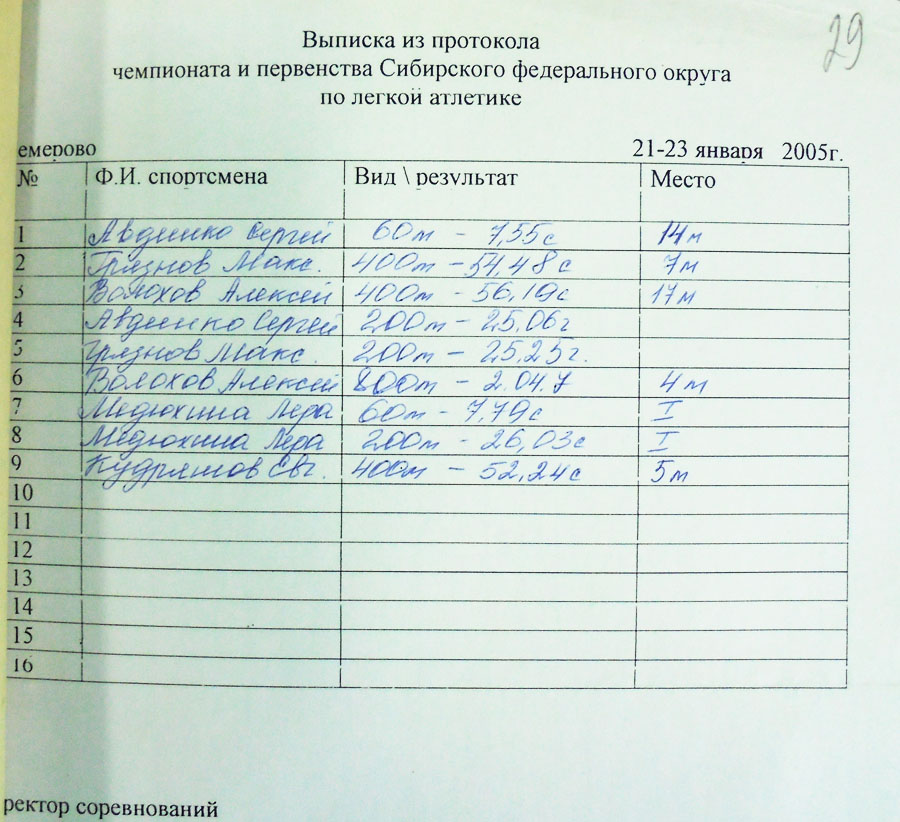 29
Выписка из протокола
чемпионата и первенства Сибирского федерального округа
по легкой атлетике
емерово 21-23 января 2005г.
№ Ф.И. спортсмена Вид \ результат Место
1 Авдеенко Сергей 60м - 7,55с 14м
2 Грязнов Макс. 400м - 54,48с 7м
3 Волохов Алексей 400м - 56,19с 17м
4 Авдеенко Сергей 200м - 25,06г
5 Грязнов Макс. 200м - 25,25г.
6 Волохов Алексей 800м - 2.04.7 4м
7 Медюхина Лера 60м - 7,79с I
8 Медюхина Лера 200м - 26,03с I
9 Кудряшов Евг. 400м - 52,24с 5м
10
11
12
13
14
15
16
ректор соревнований